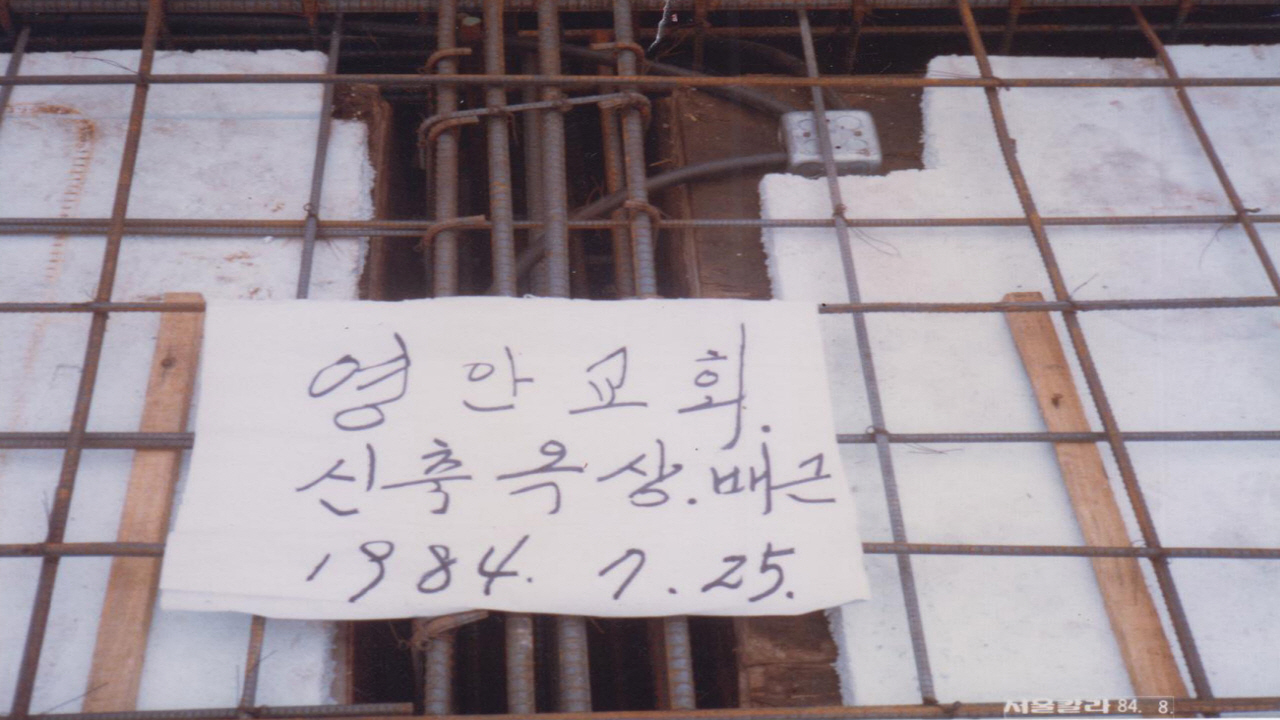 영안교회.
신축옥상.배근
1984. 7. 25.
서울칼라 84. 8.